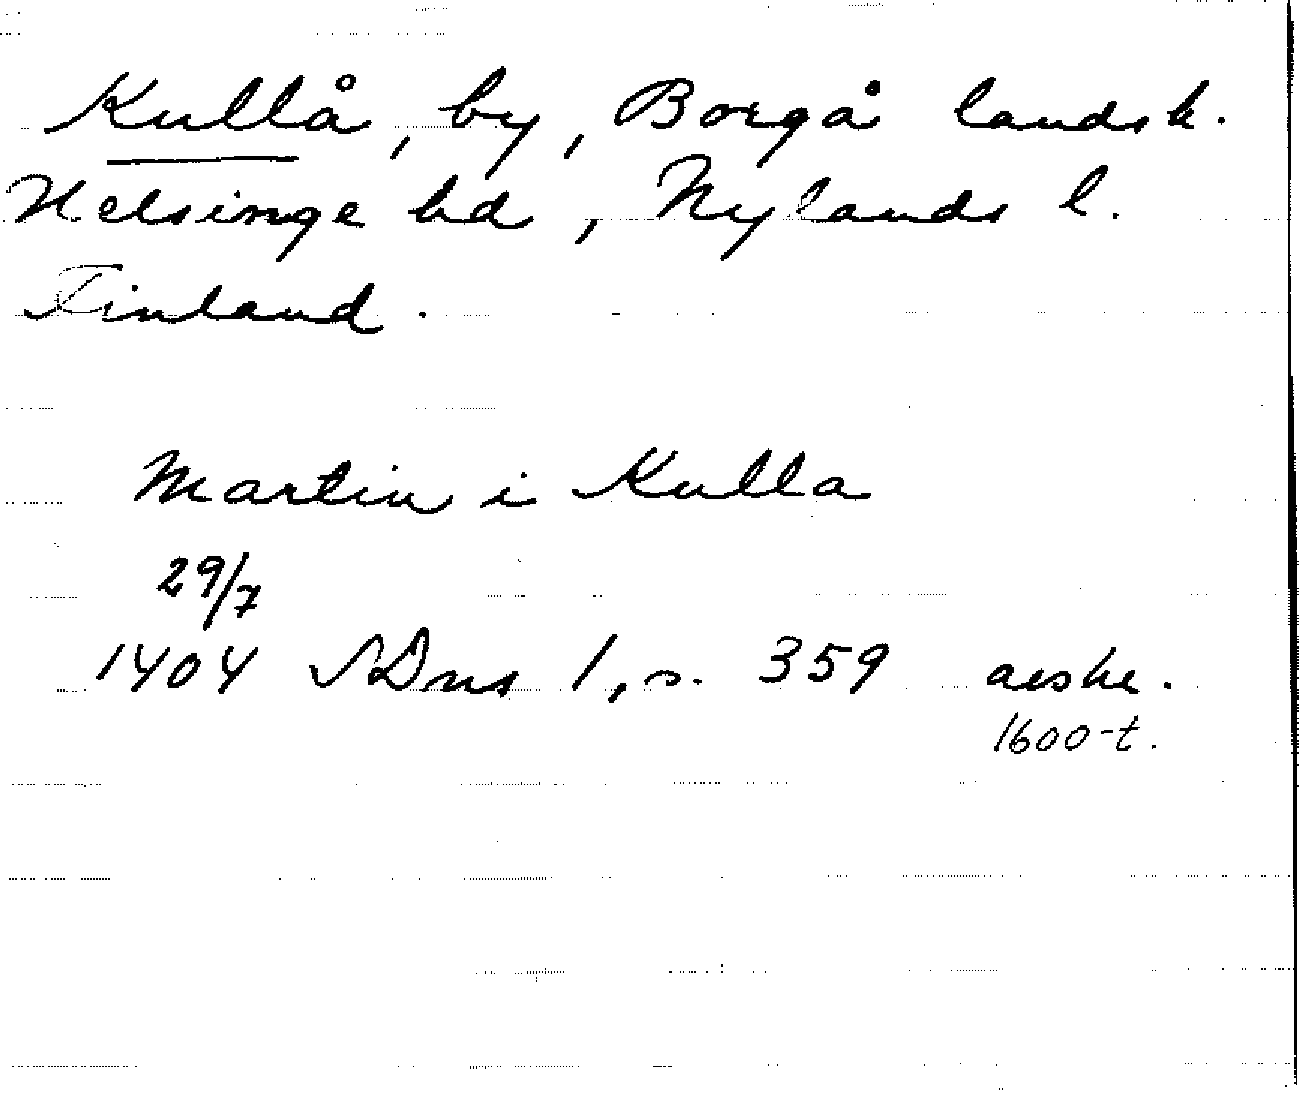 Kullå, by, Borgå landsk.
Helsinge hd, Nylands l.
Finland.
Martin i Kulla
29/7
1404 SDns 1, s. 359 avskr.
1600-t.